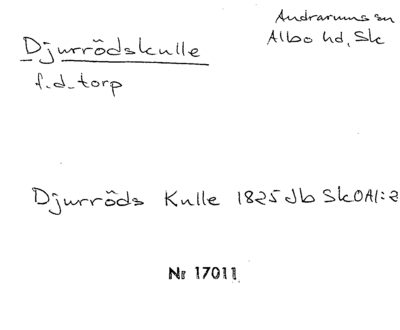 Djurrödskulle
f.d. torp
Andrarums sn
Albo hd, Sk
Djurröds Kulle 1825 Jb SkOAI:2
Nr 17011